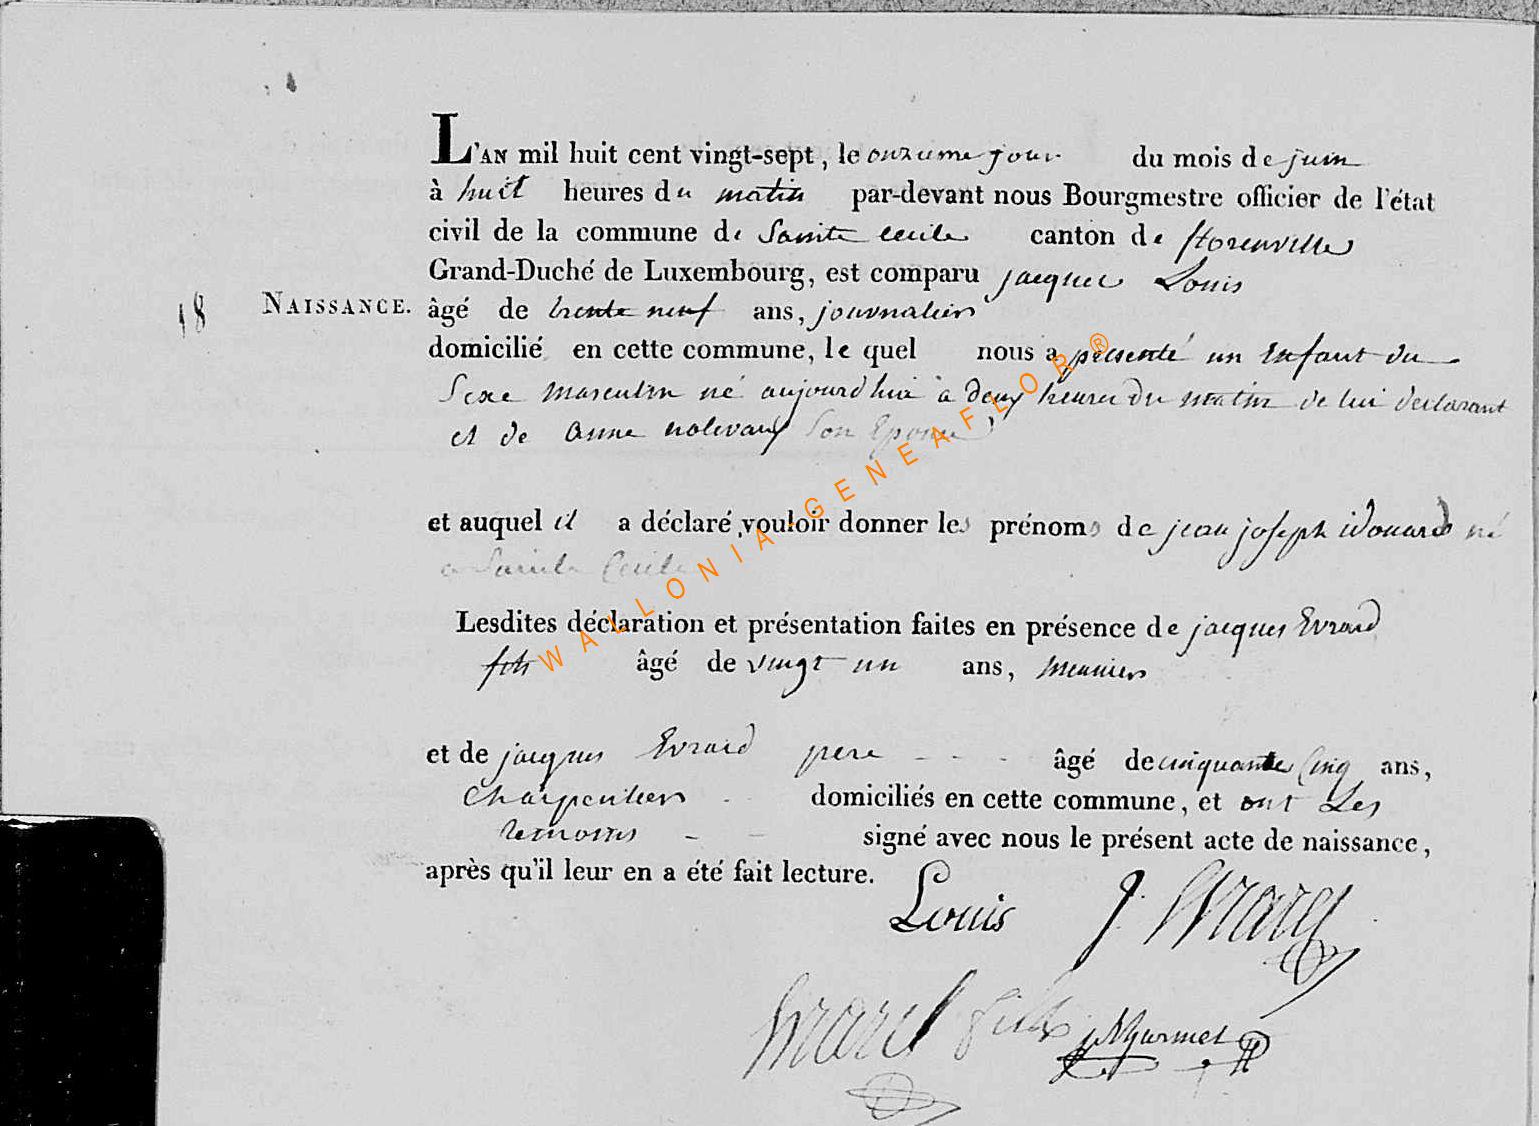 L'AN mil huit cent vingt-sept, le onzieme jour du mois de juin
à huit heures du matin par-devant nous Bourgmestre officier de l'état
civil de la commune de Sainte Cecile canton de florenville
Grand-Duché de Luxembourg, est comparu jacques Louis
18 NAISSANCE. âgé de trente neuf ans, journalier
domicilié en cette commune, le quel nous a présenté un Enfant du
Sexe masculin né aujourd'hui à deux heures du matin de lui declarant
et de anne Son Epouse,
et auquel il a déclaré vouloir donner les prénoms de jean joseph idouard né
a Sainte Cecile
Lesdites déclaration et présentation faites en présence de jacques Evrard
fils âgé de vingt un ans, meunier
et de jacques Evrard pere - - - âgé de cinquante Cinq ans,
Charpentier - - domiciliés en cette commune, et ont Les
temoins - - signé avec nous le présent acte de naissance,
après qu'il leur en a été fait lecture.
Louis J. Evrard
Evrard fils
WALLONIA-GENEAFLOR®